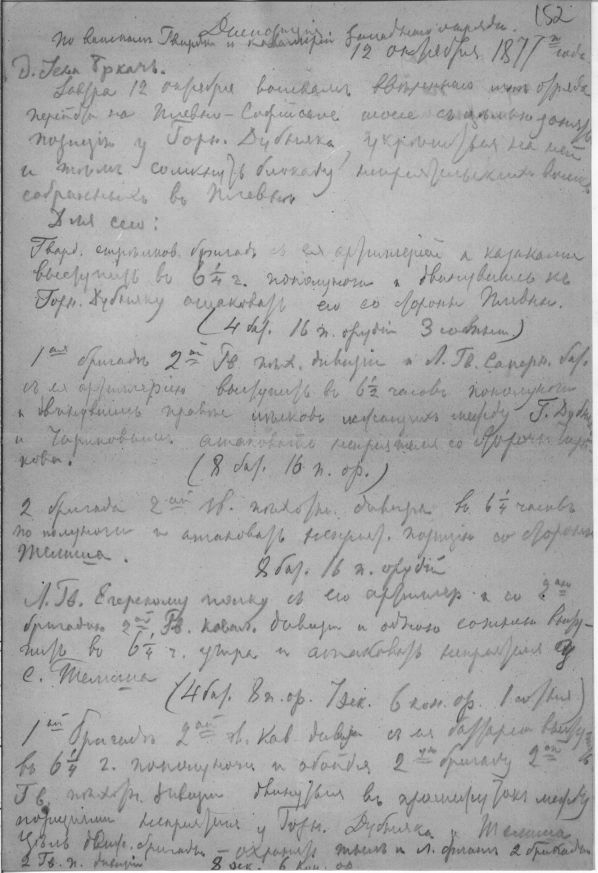 152
Диспозиция
по войскам Гвардии и кавалерии Западного отряда.
12 октября 1877 года
Д. Ески Бркачъ.
Завтра 12 октября войскамъ ввѣреннаго мнѣ отряда
перейти на Плевно-Софійское шоссе съ цѣлью занять
позицію у Горн. Дубняка, укрѣпиться на ней
и тѣмъ сомкнуть блокаду непріятельскихъ войскъ
собранныхъ въ Плевнѣ
Для сего:
Гвард. стрѣлков. бригадѣ съ ея артиллеріей и казаками
выступить въ 6 1/4 ч. пополуночи и двинувшись къ
Горн. Дубняку атаковать его со стороны Плевны.
(4 бат. 16 п. орудій 3 сотни)
1ая бригадѣ 2ой Гв. пѣх. дивизіи и Л. Гв. Саперн. бат.
съ ея артиллеріею выступить въ 6 1/2 часовъ пополуночи
и двинувшись правѣе между Г. Дубн.
и Чириковымъ атаковать непріятеля со стороны Чири-
кова.
(8 бат. 16 п. ор.)
2 бригада 2ой Гв. пѣхотн. дивизіи въ 6 1/4 часовъ
по полуночи и атаковать непріят. позицію со стороны
Телиша.
8 бат. 16 п. орудій
Л. Гв. Егерскому полку съ его артиллер. и со 2ою
бригадою 2ой Гв. кавал. дивизіи и одною сотнею высту-
пить въ 6 1/4 ч. утра и атаковать непріятеля у
с. Телиша
(4 бат. 8 п. ор. 7 эск. 6 кон. ор. 1 сотня)
1ой бригадѣ 2ой Гв. кав. дивизіи съ ея батареею выступ.
въ 6 1/4 ч. пополуночи и обойдя 2ую бригаду 2ой
Гв. пѣхотн. дивизіи двинуться въ промежутокъ между
позиціями непріятеля у Горн. Дубняка и Телиша
Цѣль бригады - охранять тылъ и л. флангъ 2 бригады
2 Гв. п. дивизіи 8 эск. 6 кон. ор.